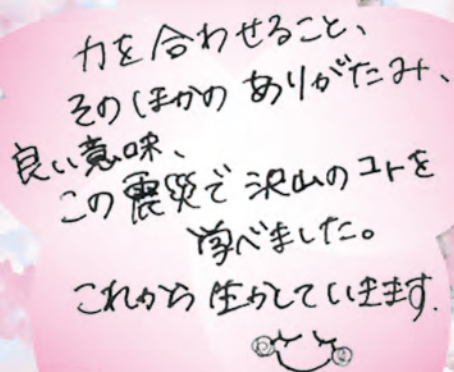 力を合わせること、
そのほかの ありがたみ、
良い意味、
この震災で 沢山のコトを
学べました。
これから 生かしていきます.